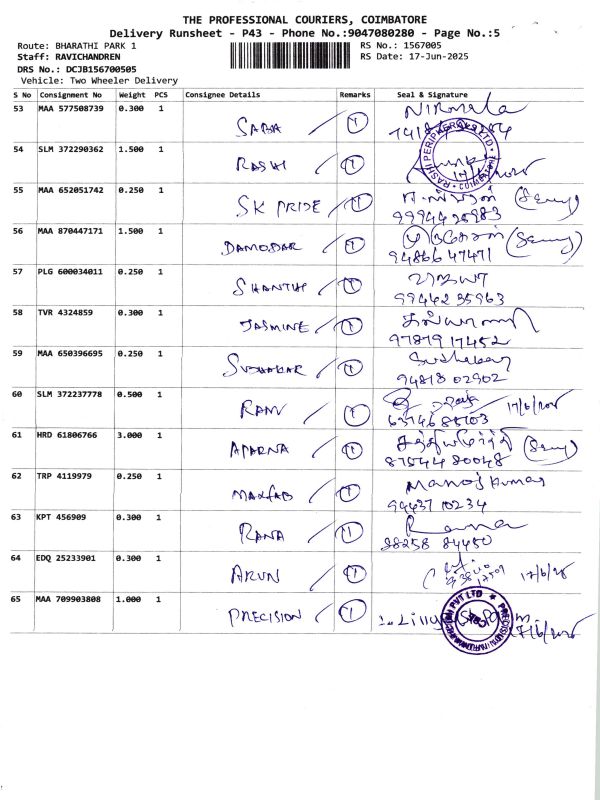 THE PROFESSIONAL COURIERS, COIMBATORE
Delivery Runsheet - P43 - Phone No.:9047080280 - Page No.:5
Route: BHARATHI PARK 1 RS No.: 1567005
Staff: RAVICHANDREN RS Date: 17-Jun-2025
DRS No.: DCJB156700505
Vehicle: Two Wheeler Delivery
S No Consignment No Weight PCS Consignee Details Remarks Seal & Signature
53 MAA 577508739 0.300 1 SABA 1 Nirmala
54 SLM 372290362 1.500 1 RASHI 1
RASHI PERIPHERALS LTD. COIMBATORE
55 MAA 652051742 0.250 1 SK PRIDE 1
99944 28983
56 MAA 870447171 1.500 1 DAMODAR 1
94866 47471
57 PLG 600034011 0.250 1 SHANTHI 1
99442 35963
58 TVR 4324859 0.300 1 JASMINE 1
97879 17452
59 MAA 650396695 0.250 1 SUDHAKAR 1 Sudhakar
94818 02902
60 SLM 372237778 0.500 1 RANU 1 17/6/2025
63746 85103
61 HRD 61806766 3.000 1 APARNA 1 சத்தியமூர்த்தி
87544 80048
62 TRP 4119979 0.250 1 1 Manoj Kumar
94437 10234
63 KPT 456909 0.300 1 RANA 1 Rana
98258 84450
64 EDQ 25233901 0.300 1 ARUN 1 17/6/25
65 MAA 709903808 1.000 1 PRECISION 1 17/6/2025